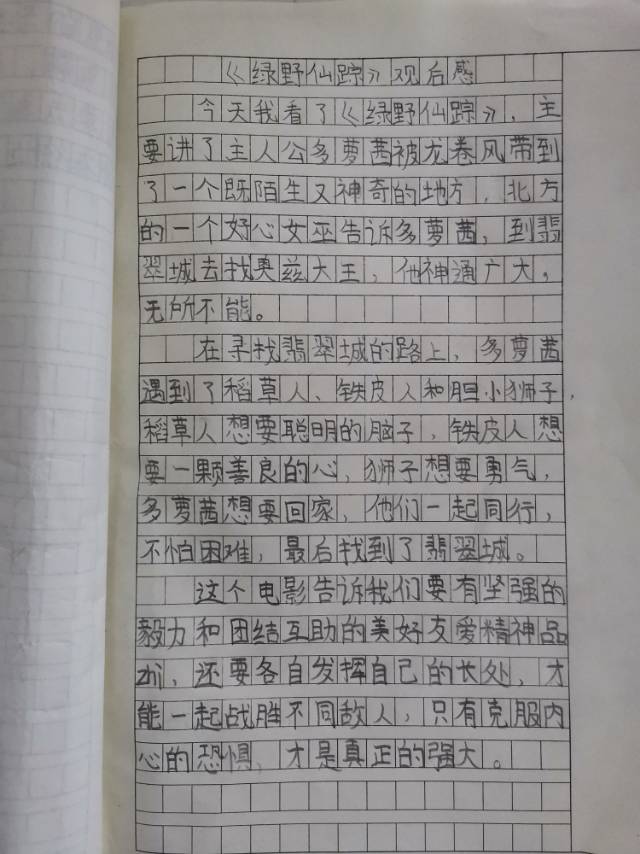 《绿野仙踪》观后感
今天我看了《绿野仙踪》，主
要讲了主人公多萝茜被龙卷风带到
了一个既陌生又神奇的地方，北方
的一个好心女巫告诉多萝茜，到翡
翠城去找奥兹大王，他神通广大，
无所不能。
在寻找翡翠城的路上，多萝茜
遇到了稻草人、铁皮人和胆小狮子，
稻草人想要聪明的脑子，铁皮人想
要一颗善良的心，狮子想要勇气，
多萝茜想要回家，他们一起同行，
不怕困难，最后找到了翡翠城。
这个电影告诉我们要有坚强的
毅力和团结互助的美好友爱精神品
zhi，还要各自发挥自己的长处，才
能一起战胜不同敌人，只有克服内
心的恐惧，才是真正的强大。